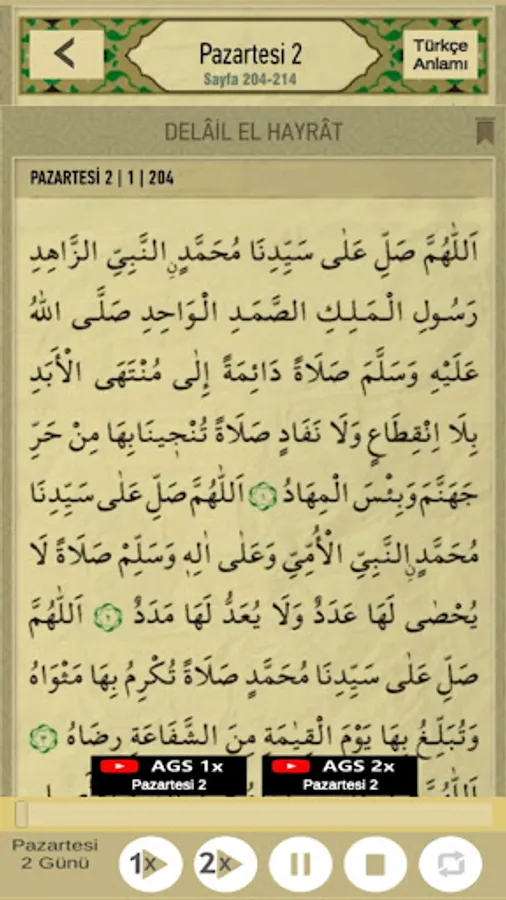 Pazartesi 2
Sayfa 204-214
Türkçe
Anlamı
DELÂİL EL HAYRÂT
PAZARTESİ 2 | 1 | 204
اَللّٰهُمَّ صَلِّ عَلٰى سَيِّدِنَا مُحَمَّدٍ ࣙالنَّبِيِّ الزَّاهِدِ
رَسُولِ الْمَلِكِ الصَّمَدِ الْوَاحِدِ صَلَّى اللهُ
عَلَيْهِ وَسَلَّمَ صَلَاةً دَائِمَةً اِلٰى مُنْتَهَى الْاَبَدِ
بِلَا اِنْقِطَاعٍ وَلَا نَفَادٍ صَلَاةً تُنْجِينَابِهَا مِنْ حَرِّ
جَهَنَّمَ وَبِئْسَ الْمِهَادُ ﴿١﴾ اَللّٰهُمَّ صَلِّ عَلٰى سَيِّدِنَا
مُحَمَّدٍ نِالنَّبِيِّ الْاُمِّيِّ وَعَلٰى اٰلِهٖ وَسَلِّمْ صَلَاةً لَا
يُحْصٰى لَهَا عَدَدٌ وَلَا يُعَدُّ لَهَا مَدَدٌ ﴿٢﴾ اَللّٰهُمَّ
صَلِّ عَلٰى سَيِّدِنَا مُحَمَّدٍ صَلَاةً تُكْرِمُ بِهَا مَثْوَاهُ
وَتُبَلِّغُ بِهَا يَوْمَ الْقِيٰمَةِ مِنَ الشَّفَاعَةِ رِضَاهُ ﴿٣﴾
AGS 1x
Pazartesi 2
AGS 2x
Pazartesi 2
Pazartesi
2 Günü
1x
2x